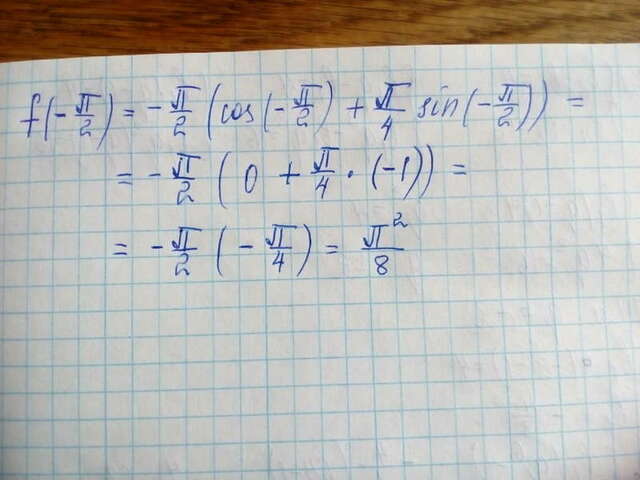 f(-π/2) = -π/2 (cos(-π/2) + π/4 sin(-π/2)) =
= -π/2 (0 + π/4 · (-1)) =
= -π/2 (-π/4) = π²/8